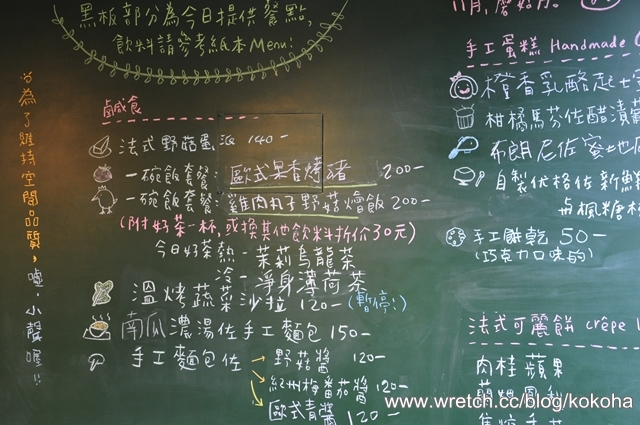 黑板部分為今日提供餐點,
飲料請參考紙本Menu!
為了維持空間品質,噓,小聲喔!!
鹹食
法式野菇蛋派 140-
一碗飯套餐: 歐式果香烤豬 200-
一碗飯套餐: 雞肉丸子野菇燴飯 200-
(附好茶一杯,或換其他飲料折價30元)
今日好茶 熱-茉莉烏龍茶
冷-淨身薄荷茶
溫烤蔬菜沙拉 120- (暫停!)
南瓜濃湯佐手工麵包 150-
手工麵包佐 野菇醬 120-
紀州梅番茄醬 120-
歐式青醬 120
11月,蘑菇月。
手工蛋糕 Handmade
橙香乳酪起士
柑橘馬芬佐醋漬
布朗尼佐蜜
自製优格佐新鮮
与楓糖
手工餅乾 50-
(巧克力口味的)
法式可麗餅 crêpe
肉桂蘋果
www.wretch.cc/blog/kokoha